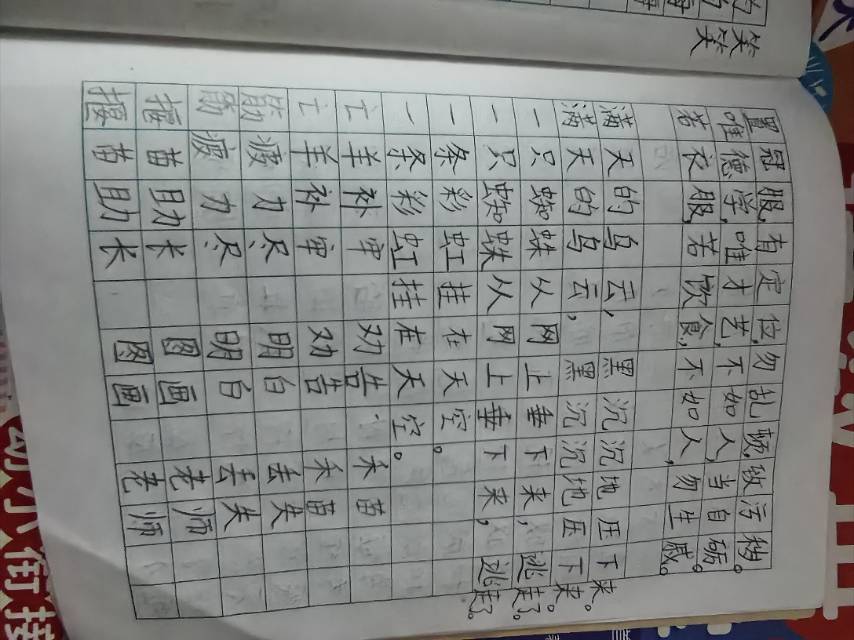 笑笑
置冠服,有定位,勿乱顿,致污秽。
唯德学,唯才艺,不如人,当自砺。
若衣服,若饮食,不如人,勿生戚。
满天的乌云,黑沉沉地压下来。
满天的乌云,黑沉沉地压下来。
一只蜘蛛从网上垂下来,逃走了。
一只蜘蛛从网上垂下来,逃走了。
一条彩虹挂在天空。
一条彩虹挂在天空。
亡羊补牢 劝告 禾苗
亡羊补牢 劝告 禾苗
筋疲力尽 明白 丢失
筋疲力尽 明白 丢失
揠苗助长 图画 老师
揠苗助长 图画 老师